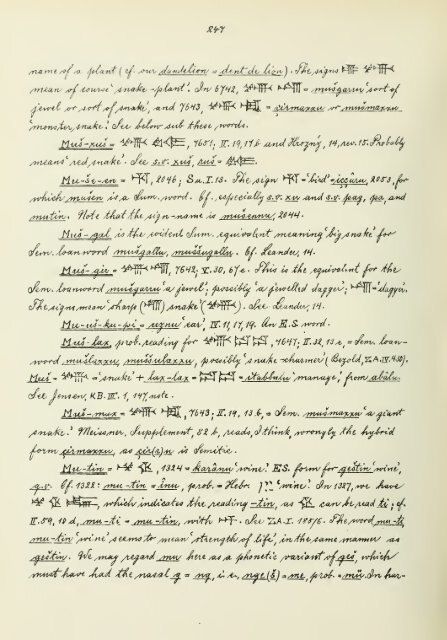 247
name of a plant (cf. our dandelion = dent de lion). The signs
mean of course 'snake-plant'. In 6742, = mušgarru 'sort of
jewel or sort of snake', and 7643, = çirmaxxu or mušmaxxu
'monster snake'. See below sub these words.
Muš-xuš = 7651; II. 19,17b and Hrozný, 14, rev. 15. Probably
means 'red snake'. See s.v. xuš, ruš =
Mu-še-en = 2046; Sa. I. 13. The sign = 'bird' = iççûru, 2053, for
which mušen is a Sum. word. Cf. especially s.v. xu and s.v. pag, pa, and
mutin. Note that the sign-name is mušennu, 2044.
Muš-gal is the evident Sum. equivalent meaning 'big snake' for
Sem. loanword mušgallu, muššugallu. Cf. Leander, 14.
Muš-gir = 7642; V. 30, 67e. This is the equivalent for the
Sem. loanword mušgarru 'a jewel', possibly 'a jewelled dagger'; = 'dagger'.
The signs mean 'sharp ( ) snake ( ). See Leander, 14.
Mu-uš-ku-pi = uznu 'ear', II. 11, 17, 14. An E.S. word.
Muš-lax, prob. reading for 7647; II. 32, 13 e, = Sem. loan-
word mušlaxxu, mušsulaxxu, possibly 'snake-charmer' (Bezold, Z.A. IV. 430).
Muš = = 'snake' + lax-lax = = itabbulu 'manage', from abâlu.
See Jensen, KB. III. 1, 147, note.
Muš-max = 7643; II. 19, 13 b, = Sem. mušmaxxu 'a giant
snake'. Meissner, Supplement, 82 b, reads, I think, wrongly the hybrid
form çirmaxxu, as çir(s)u is Semitic.
Mu-tin = 1324 = karânu 'wine'. ES. form for geštin 'wine',
q.v. Cf. 1322: mu-tin = înu, prob. = Hebr. יין 'wine'. In 1327, we have
which indicates the reading -tin, as can be read ti; cf.
II. 59, 18 d, mu-ti = mu-tin, with See Z.A. I. The word mu-ti,
mu-tin 'wine' seems to mean 'strength of life', in the same manner as
geštin. We may regard mu here as a phonetic variant of geš, which
must have had the nasal g = ng, i.e., nge(š) = me, prob. = mü. In hur-